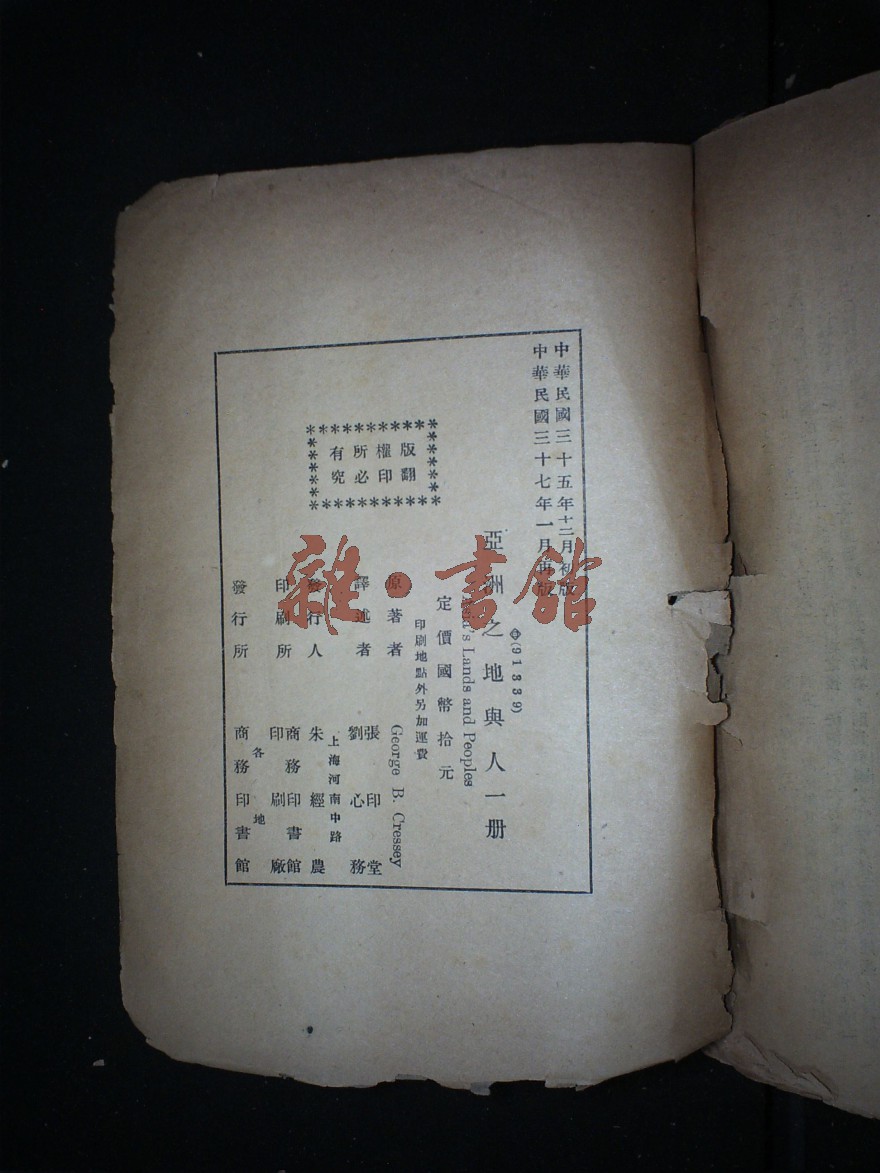 中華民國三十五年十二月初版
中華民國三十七年一月再版
㊥(91339)
亞洲之地與人一册
Asia's Lands and Peoples
定價國幣拾元
印刷地點外另加運費
版權所有
翻印必究
原著者 George B. Cressey
譯述者 張印堂
劉心務
發行人 朱經農
上海河南中路
印刷所 商務印書館
印刷廠
發行所 商務印書館
各地
雜·書館